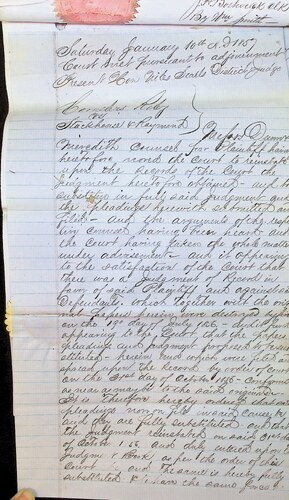 By Wm Smith
Saturday January 10th A.D. 1157
Court met pursuant to adjournment
Present Hon Niles Searls District Judge
vs
Stackhouse & Raymond
Meredith Counsel for Plaintiff having
heretofore moved the Court to reinstate
upon the Records of the Court the
judgment heretofore obtained and to
substitute in full said judgment and
the pleadings herewith submitted and
filed - and the arguments of the respec
tive counsel having been heard and
the Court having taken the whole matter
under advisement - and it appearing
to the satisfaction of the Court that
there was a judgment of Record in
favor of said Plaintiff and against said
Defendants, which together with the orig
inal papers herein were destroyed by fire
on the 19th day of July 1856 - and it further
appearing to the Court that the papers
pleadings and judgment proposed to be sub
stituted - herein and which were filed and
spread upon the Record by order of court
on the 3rd day of October 1856 - conforms
as near as may be to the said originals
It is Therefore hereby ordered that said
pleadings now on file in said cause be
and they are fully substituted and that
the judgment reinstated on said 3rd day
of October 1856 and duly entered upon
Judgmt Book as per the order of this
Court - and the same is hereby fully
substituted &